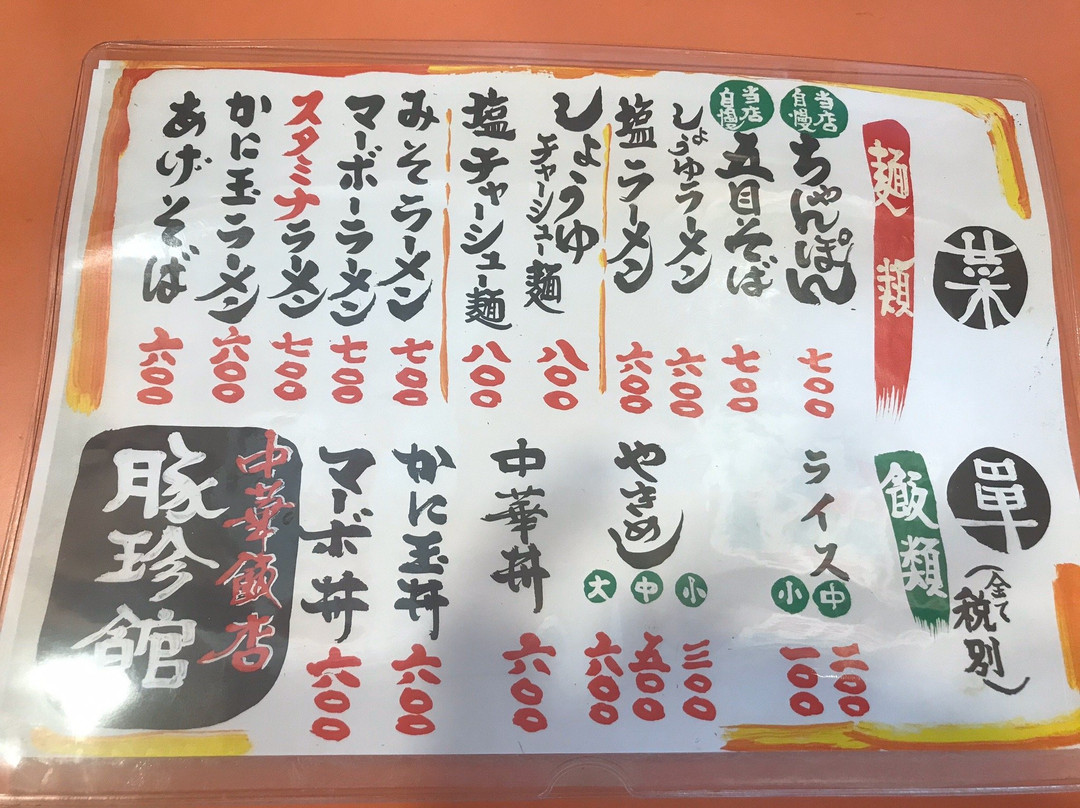 菜單
(全て税別)
麺類
当店自慢
ちゃんぽん 七〇〇
当店自慢
五目そば 七〇〇
しょうゆラーメン 六〇〇
塩ラーメン 六〇〇
しょうゆチャーシュー麺 八〇〇
塩チャーシュー麺 八〇〇
みそラーメン 七〇〇
マーボーラーメン 七〇〇
スタミナラーメン 七〇〇
かに玉ラーメン 六〇〇
あげそば 六〇〇
飯類
ライス
中 二〇〇
小 一〇〇
やきめし
小 三〇〇
中 五〇〇
大 六〇〇
中華丼 六〇〇
かに玉丼 六〇〇
マーボ丼 六〇〇
中華飯店
豚珍館